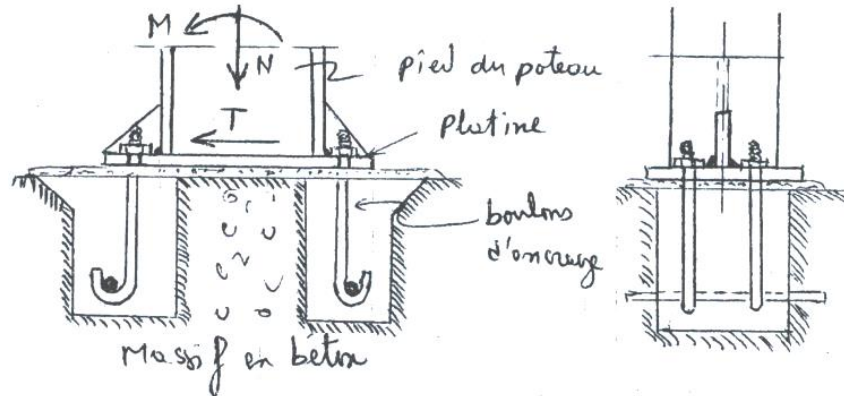 M
N
pied du poteau
T
platine
boulons
d'ancrage
Massif en béton